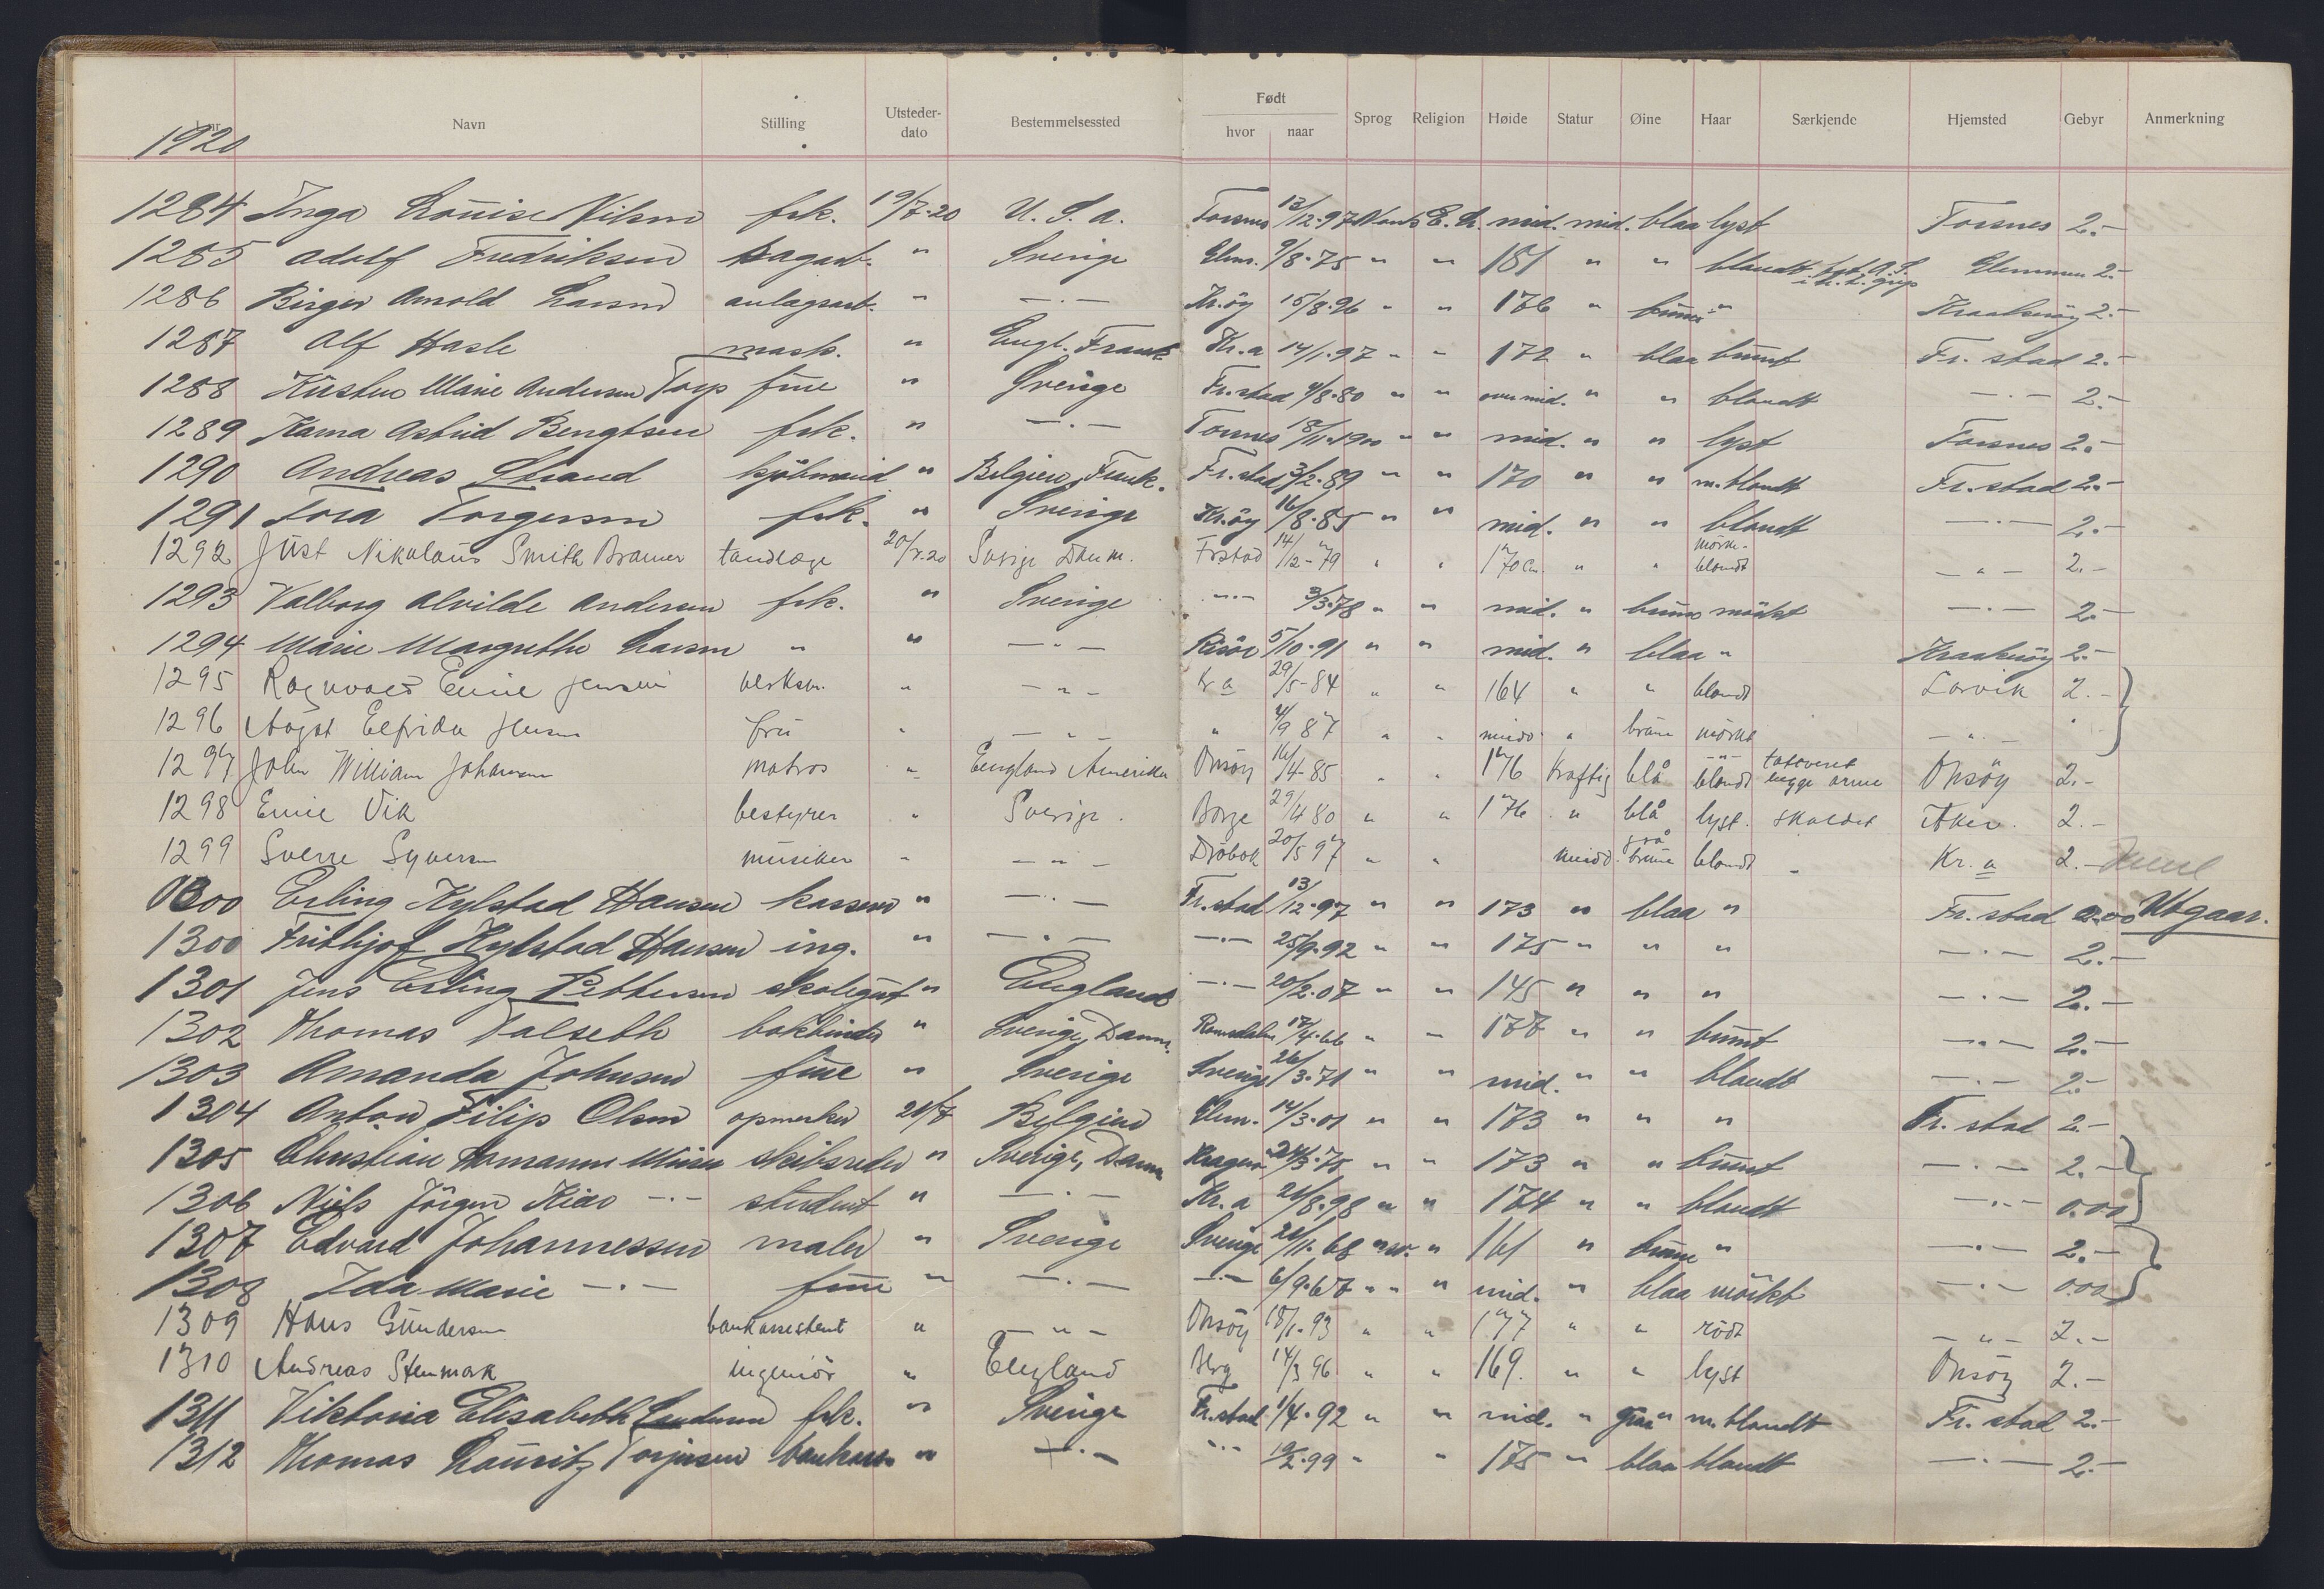 Født
L.nr. Navn Stilling Utsteder-dato Bestemmelsessted hvor naar Sprog Religion Høide Statur Øine Haar Særkjende Hjemsted Gebyr Anmerkning
1920
1284 Inga Louise Nilsen frk. 19/7-20 U.S.A. Torsnes 13/12-97 Norsk E.L. mid. mid. blaa lyst Torsnes 2.-
1285 Adolf Fredriksen " Sverige Glem. 9/8-75 " " 181 " " blandt Glemmen 2.-
1286 Birger Arnold Larsen anlagsarb. " —"— Kr.öy 15/8-96 " " 176 " brune " Kraakeröy 2.-
1287 Alf Hasle mask. " Engl. Frank Kr.a 14/1-97 " " 172 " blaa brunt Fr.stad 2.-
1288 Kirsten Marie Andersen Torp frue " Sverige Fr.stad 4/8-80 " " over mid. " " blondt —"— 2.-
1289 Karna Astrid Bengtsen frk. " —"— Torsnes 18/11-1900 " " mid. " " lyst Torsnes 2.-
1290 Andreas Strand kjöbmand " Belgien, Frank. Fr.stad 3/2-89 " " 170 " " m.blondt Fr.stad 2.-
1291 Tora Torgersen frk. " Sverige Kr.öy 16/8-85 " " mid. " " blondt —"— 2.-
1292 Just Nikolaus Smith Bramer tandlæge 20/7-20 Sverige Danm. Frstad 14/12-79 " " 170 cm " " mörk-blondt —"— 2.-
1293 Valborg Alvilde Andersen frk. " Sverige —"— 3/3-78 " " mid. " brune mörkt —"— 2.-
1294 Marie Margrethe Larsen " " —"— Risör 5/10-91 " " mid. " blaa " Kraakeröy 2.-
1295 Ragnvald Emil Jensen verksm. " —"— Kr a 29/5-84 " " 164 " " blondt Larvik 2.-
1296 Elfrida Jensen fru " —"— " 4/9 87 " " midd " brune mörkt —"— "
1297 John William Johansen matros " England Amerika Onsöy 16/4-85 " " 176 kraftig blå blondt tatoveret begge arme Onsöy 2.-
1298 Emil Vik bestyrer " Sverige. Borge 29/4 80 " " 176 " blå lyst. skaldet Aker. 2.-
1299 Sverre Syversen musiker " —"— Dröbak 20/5 97 " " midd. grå brune blondt - Kr. a 2.-
1300 Erling Hylstad Hansen kasserer " —"— Fr.stad 13/12-97 " " 173 " blaa " Fr.stad 2.00 Utgaar.
1300 Frithjof Hylstad Hansen ing. " —"— —"— 25/9-92 " " 175 " " " —"— 2.-
1301 Jens Erling Pettersen skolegut " England —"— 20/2-07 " " 145 " " " —"— 2.-
1302 Thomas Valseth bokbinder " Sverige, Danm. Romsdalen 17/4-66 " " 177 " " brunt —"— 2.-
1303 Amanda Johnsen frue " Sverige Sverige 26/3-71 " " mid. " " blondt —"— 2.-
1304 Anton Filip Olsen opmerker 21/7 Belgien Glem. 14/3-01 " " 173 " " " Fr.stad 2.-
1305 Christian Homann skibsreder " Sverige, Danm Kragerö 24/3-75 " " 173 " " brunt —"— 2.-
1306 Niels Jörgen Kiær —"— student " —"— Kr.a 21/8-98 " " 174 " " blondt —"— 0.00
1307 Edvard Johannessen maler " Sverige Sverige 21/11-68 " " 161 " brune " —"— 2.-
1308 Ida Marie —"— frue " —"— —"— 6/9-67 " " mid. " blaa mörkt —"— 0.00
1309 Hans Gundersen bankassistent " —"— Onsöy 18/1-93 " " 177 " " rödt —"— 2.-
1310 Andreas Stenmark ingeniör " England Berg 14/3 96 " " 169. " " lyst Onsöy 2.-
1311 Viktoria Elisabeth frk. " Sverige Fr.stad 1/4-92 " " mid. " graa m.blondt Fr.stad 2.-
1312 Thomas Lauritz Torjusen bankass " —"— —"— 19/2-99 " " 175 " blaa blondt —"— 2.-